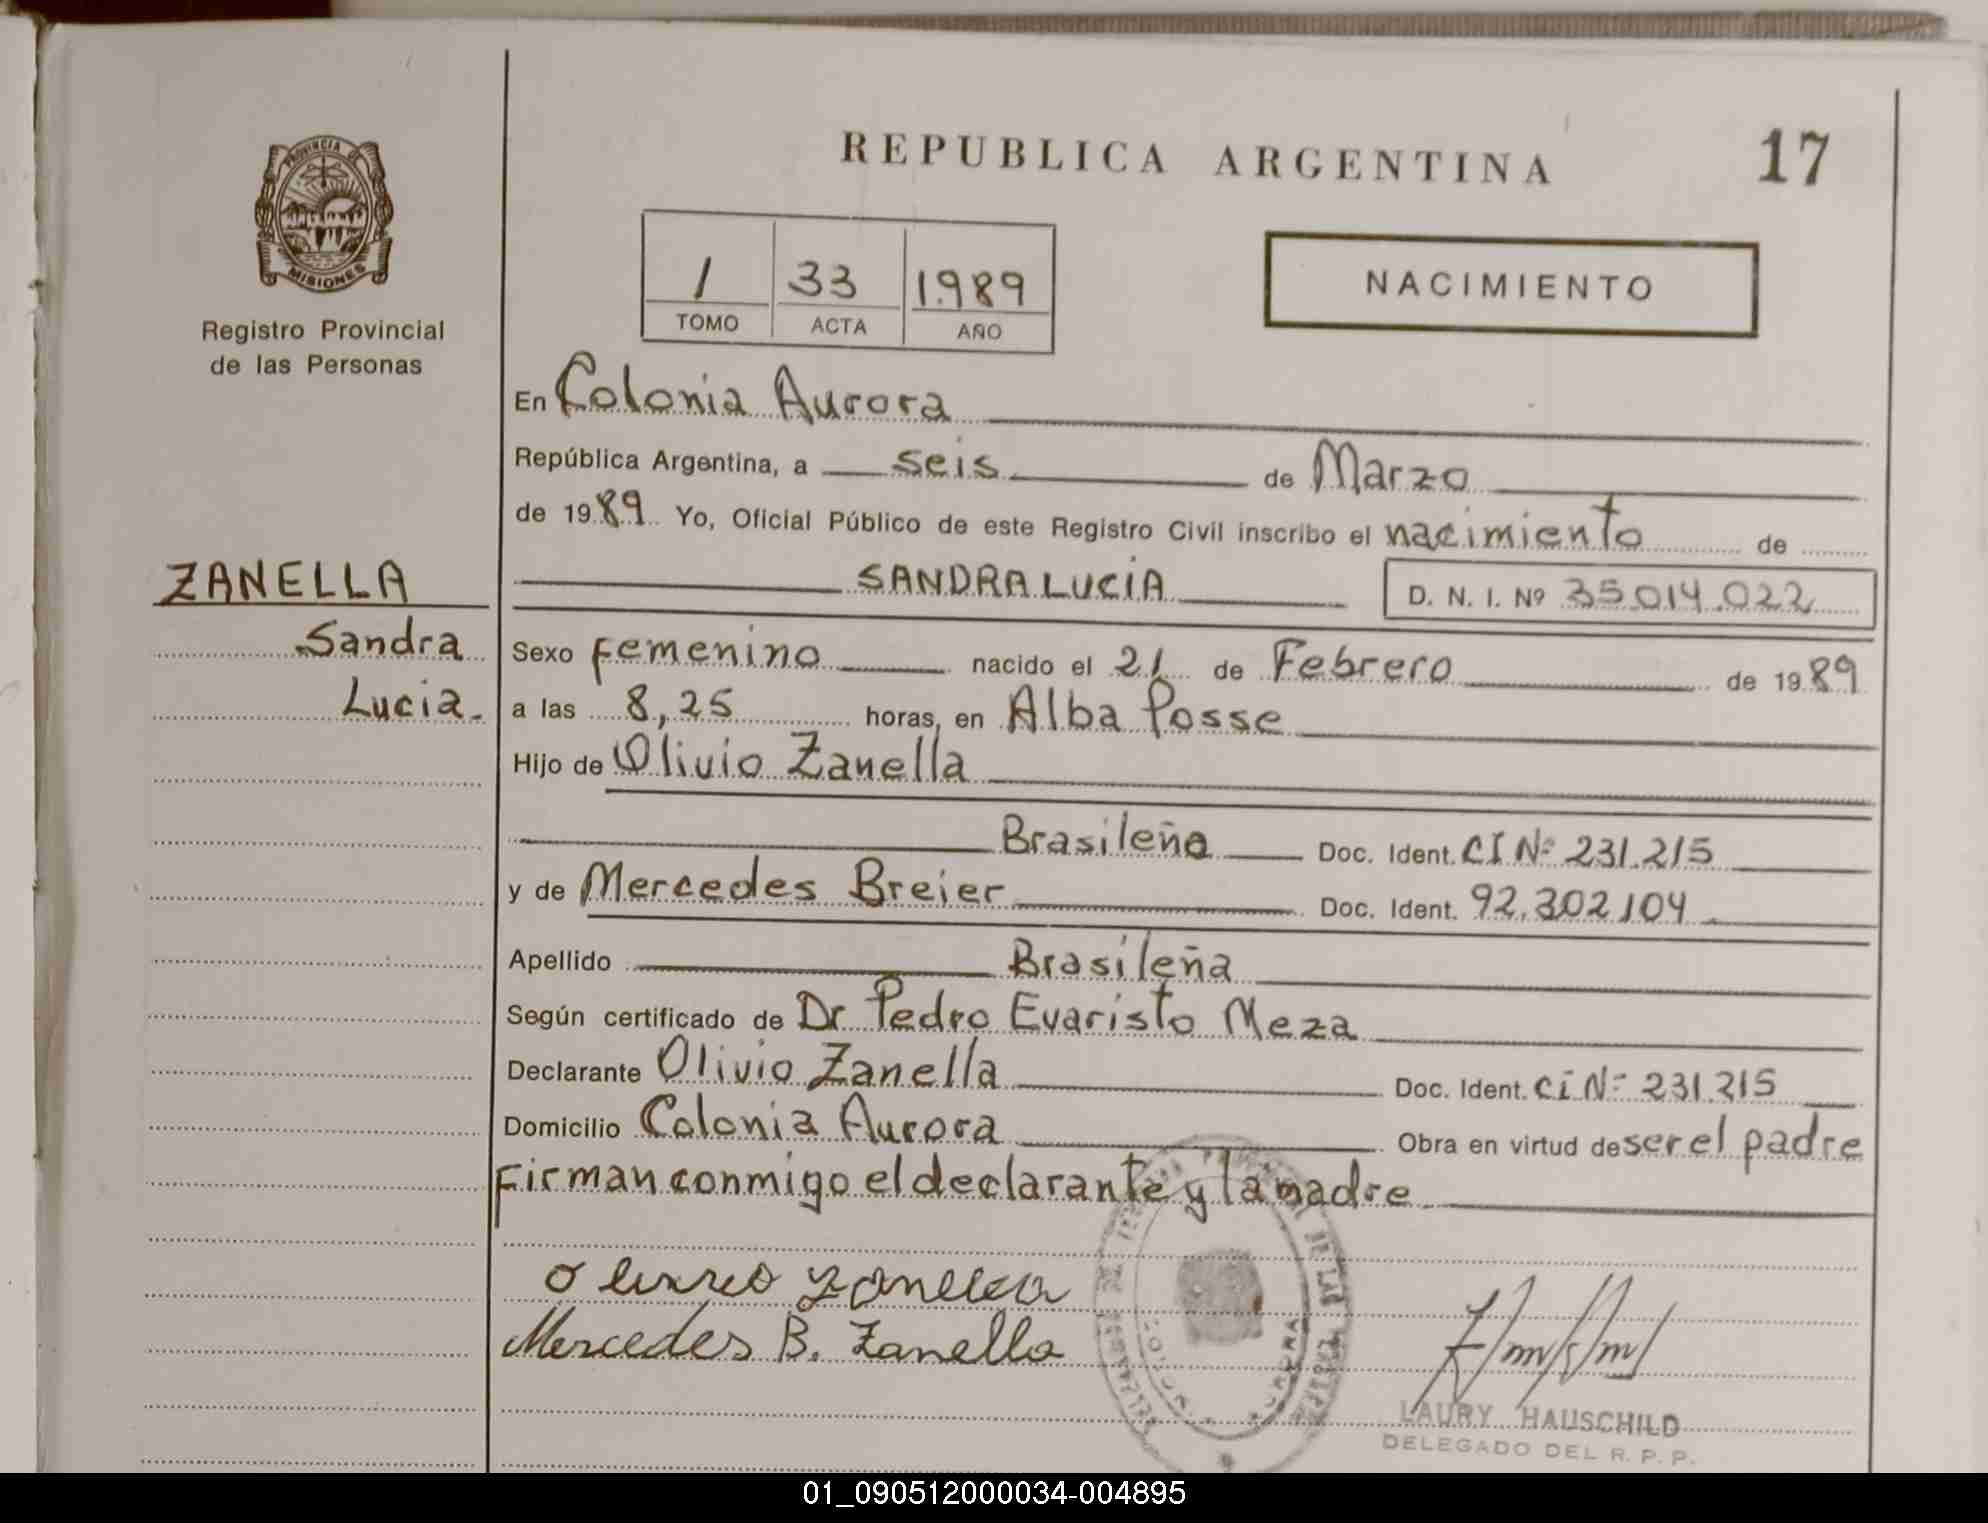 REPUBLICA ARGENTINA
17
PROVINCIA DE
MISIONES
Registro Provincial
de las Personas
1 33 1.989
TOMO ACTA AÑO
NACIMIENTO
En Colonia Aurora
República Argentina, a seis de Marzo
de 1989 Yo, Oficial Público de este Registro Civil inscribo el nacimiento de
ZANELLA
Sandra
Lucia.
SANDRA LUCIA D. N. I. Nº 35.014.022
Sexo Femenino nacido el 21 de Febrero de 1989
a las 8,25 horas, en Alba Posse
Hijo de Olivio Zanella
Brasileño Doc. Ident. CI Nº 231.215
y de Mercedes Breier Doc. Ident. 92.302.104
Apellido Brasileña
Según certificado de Dr Pedro Evaristo Meza
Declarante Olivio Zanella Doc. Ident. CI Nº 231.215
Domicilio Colonia Aurora Obra en virtud de ser el padre
Firman conmigo el declarante y la madre
Olivio Zanella
Mercedes B. Zanella
LAURY HAUSCHILD
DELEGADO DEL R. P. P.
01_090512000034-004895